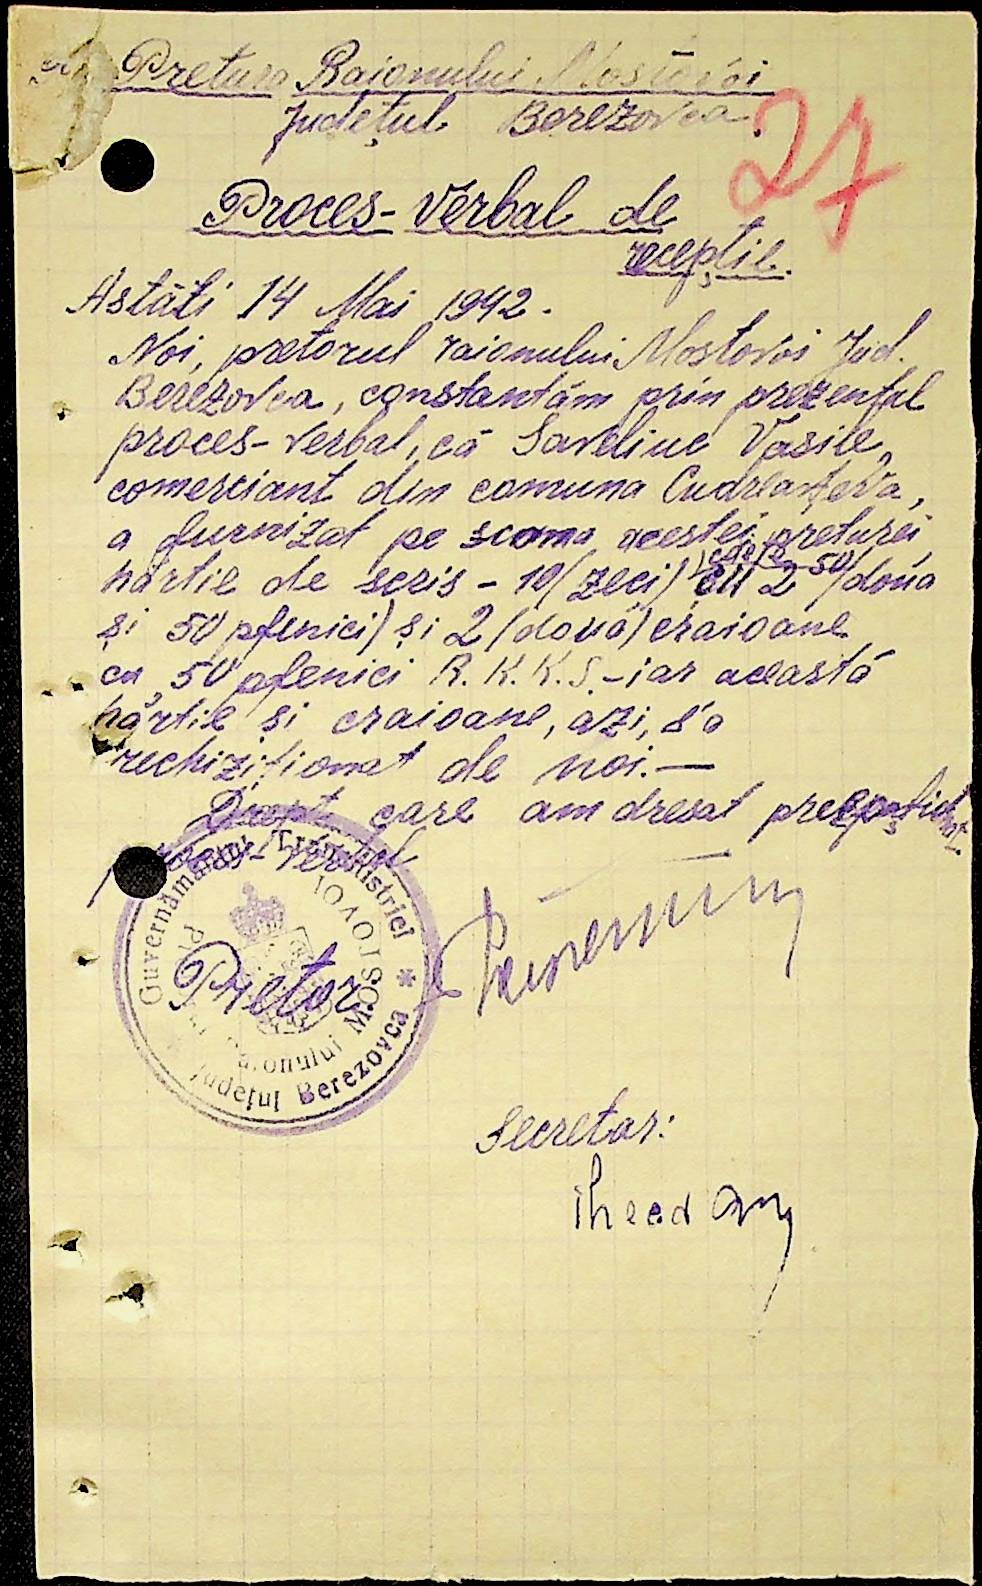 Pretura Raionului Mostovoi
Județul Berezovca
27
Proces-Verbal de
recepție.
Astăți 14 Mai 1942.
Noi, pretorul raionului Mostovoi Jud.
Berezovca, constantăm prin prezentul
proces-verbal, că Saveliuc Vasile,
comerciant din comuna
a furnizat pe scama acestei preturei
hârtie de scris - 10 (zeci) cu 2-50 (doua
și 50 pfenici) și 2 (două) craioane
cu 50 pfenici R.K.K.S. - iar această
hârtie și craioane, azi, s'a
rechiziționat de noi. —
Drept care am dresat
proces-verbal
Guvernământul Transnistriei
Raionului MOSTOVOI
Județul Berezovca
Pretor
Secretar: